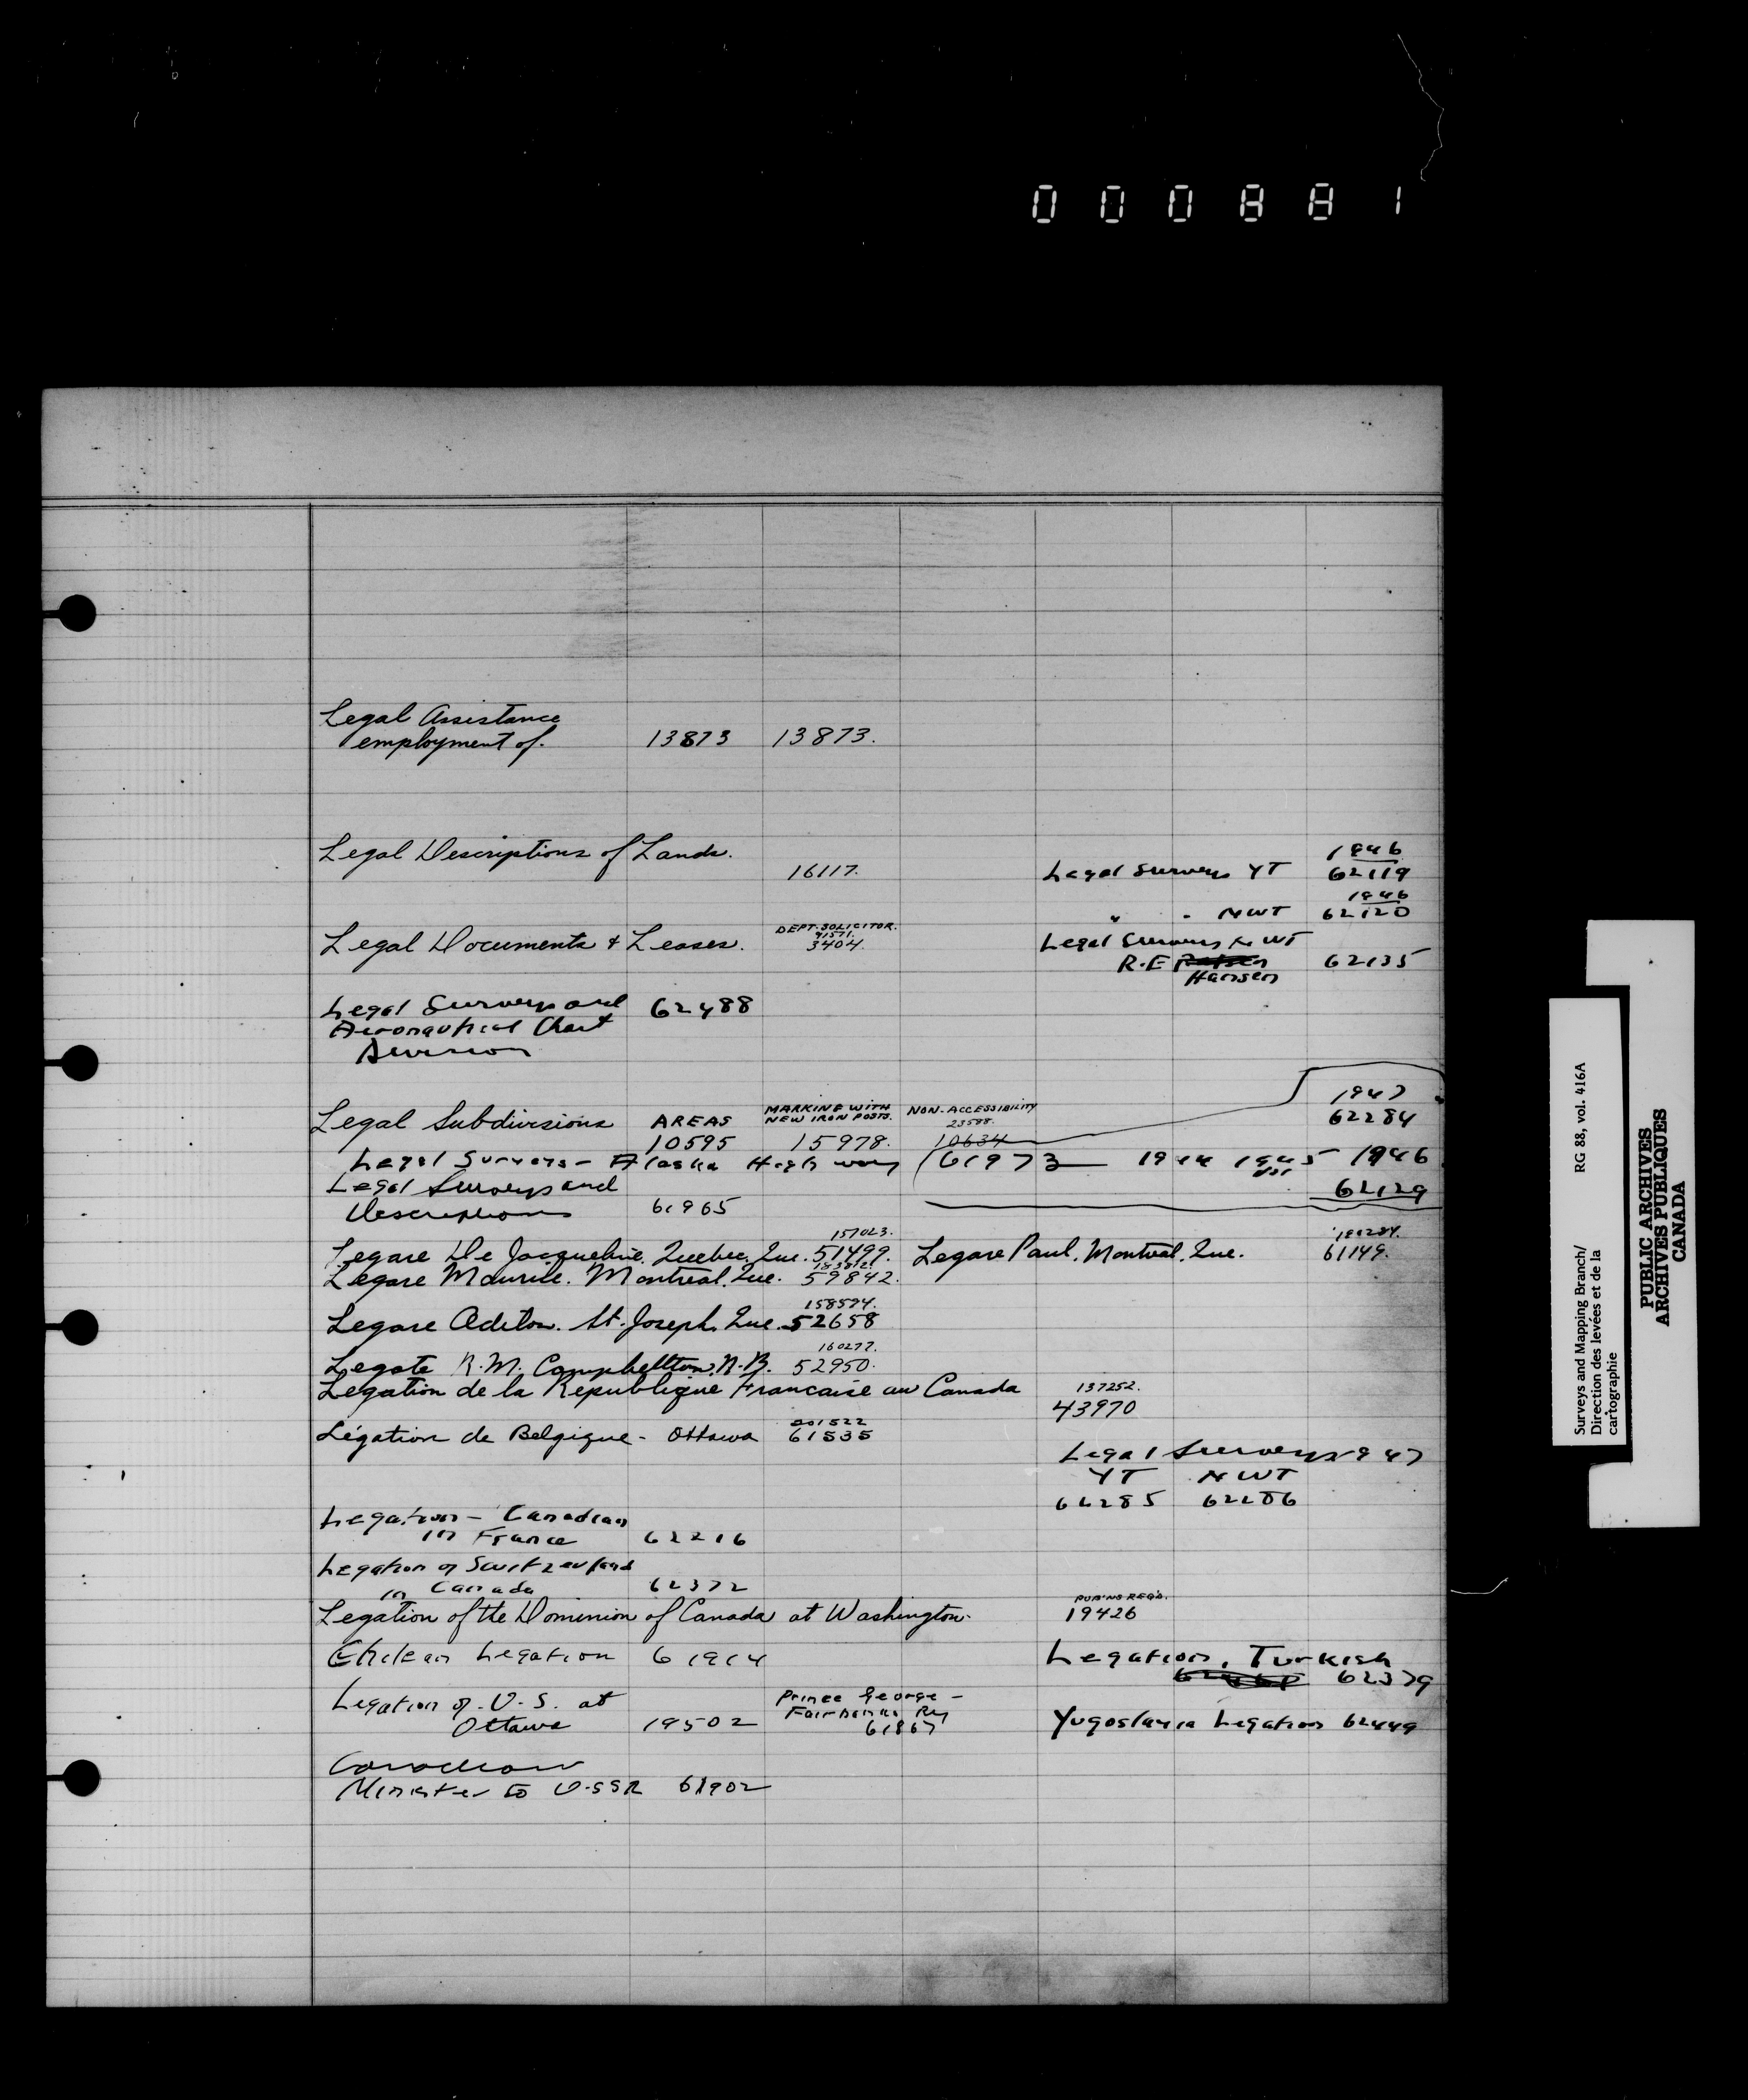 000881
Legal Assistance
employment of. 13873 13873.
Legal Descriptions of Lands.
16117.
1946
Legal Surveys YT 62119
1946
" - NWT 62120
DEPT. SOLICITOR.
91571.
Legal Documents & Leases. 3404.
Legal Surveys NWT
R.E. 62135
Hansen
Legal Surveys and 62488
Aeronautical Chart
Division
1947
62284
Legal Subdivisions AREAS MARKING WITH NEW IRON POSTS. NON-ACCESSIBILITY
23588.
10595 15978. 10634
Legal Surveys - Alaska Highway (61973 1944 1945 1946
Legal Surveys and 62129
Descriptions 61965
157023.
Legare De Jacqueline. Quebec. Que. 51499. Legare Paul. Montreal. Que. 61149.
Legare Maurice. Montreal. Que. 59842.
158594.
Legare Adelton. St. Joseph. Que. 52658
160277.
Legate R.M. Campbellton. N.B. 52950.
Legation de la Republique Francaise au Canada 137252.
43970
201522
Légation de Belgique - Ottawa 61535
Legal Surveys 1947
YT NWT
62285 62286
Legation - Canadian
in France 62216
Legation of Switzerland
in Canada 62372
Legation of the Dominion of Canada at Washington. PUB'NS REQ'D.
19426
Chilean Legation 61914
Legation, Turkish
62379
Legation of U.S. at
Ottawa 19502
Prince George -
Fairbanks Ry
61867
Yugoslavia Legation 62449
Canadian
Minister to U.SSR 61902
Surveys and Mapping Branch/ RG 88, vol. 416A
Direction des levées et de la
cartographie
PUBLIC ARCHIVES
ARCHIVES PUBLIQUES
CANADA